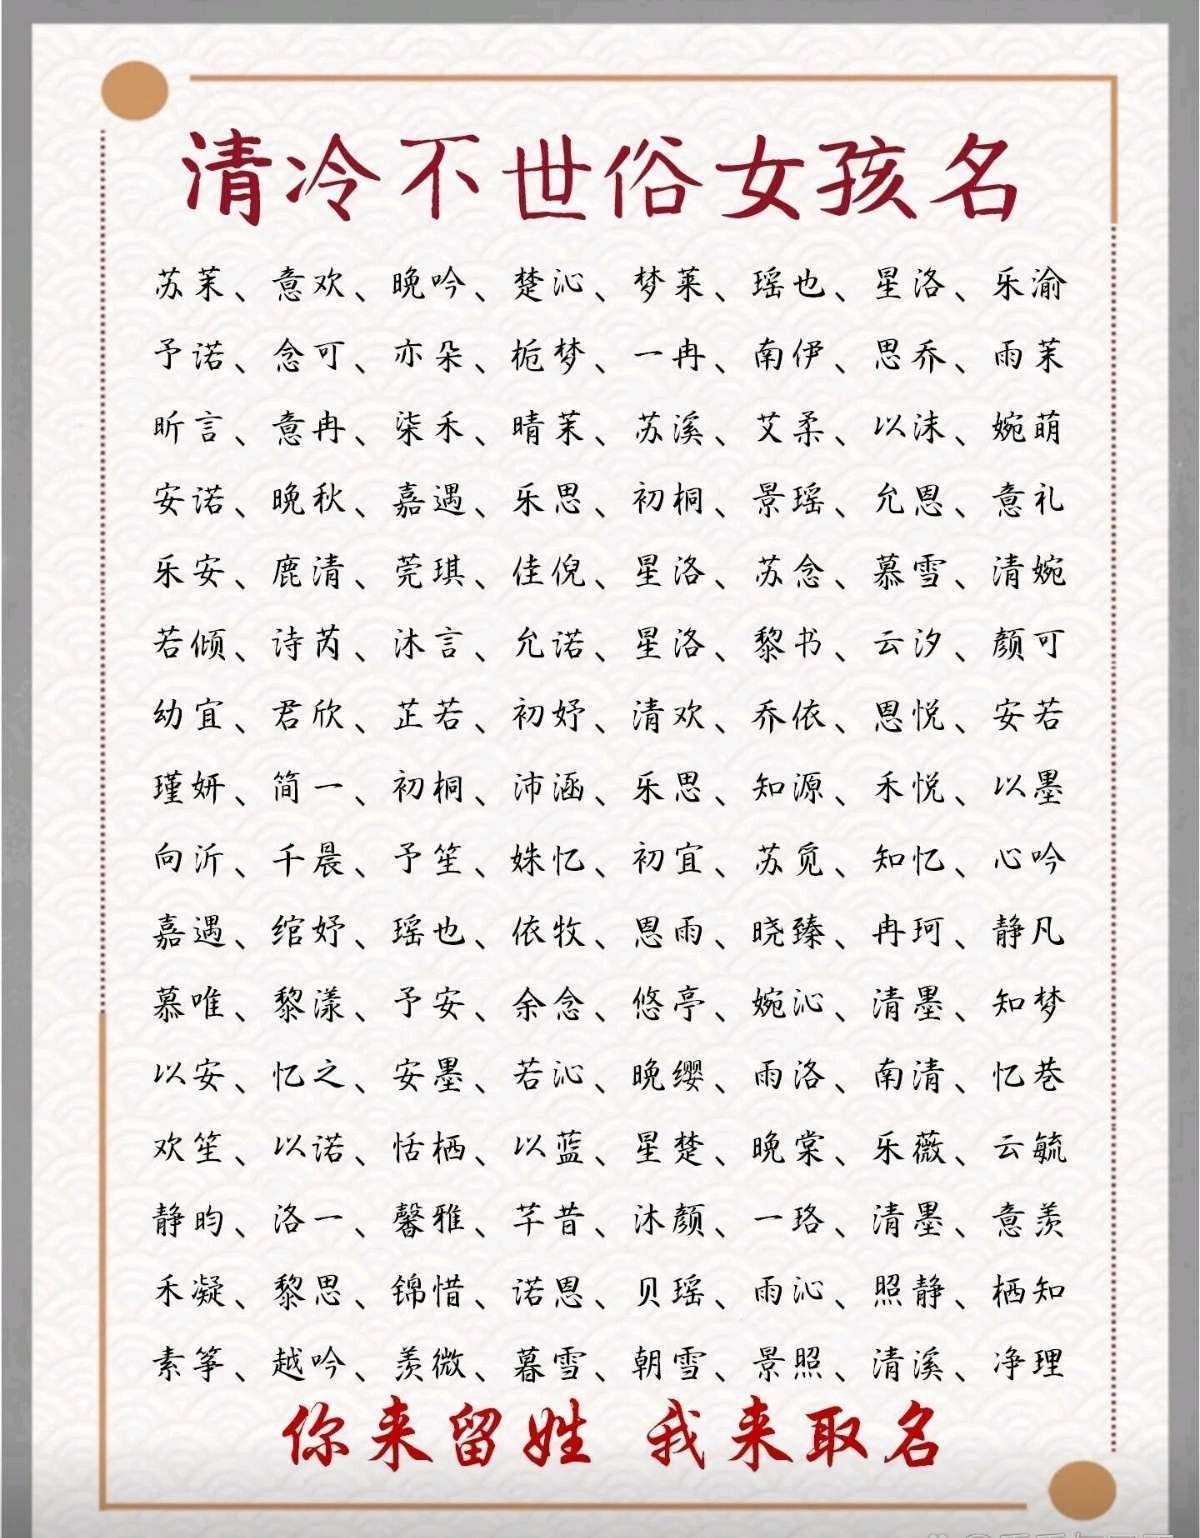 清冷不世俗女孩名
苏茉、意欢、晚吟、楚沁、梦莱、瑶也、星洛、乐渝
予诺、念可、亦朵、栀梦、一冉、南伊、思乔、雨茉
昕言、意冉、柒禾、晴茉、苏溪、艾柔、以沫、婉萌
安诺、晚秋、嘉遇、乐思、初桐、景瑶、允恩、意礼
乐安、鹿清、莞琪、佳倪、星洛、苏念、慕雪、清婉
若倾、诗芮、沐言、允诺、星洛、黎书、云汐、颜可
幼宜、君欣、芷若、初妤、清欢、乔依、恩悦、安若
瑾妍、简一、初桐、沛涵、乐思、知源、禾悦、以墨
向沂、千晨、予笙、姝忆、初宜、苏觅、知忆、心吟
嘉遇、绾妤、瑶也、依牧、恩雨、晓臻、冉珂、静凡
慕唯、黎漾、予安、余念、悠亭、婉沁、清墨、知梦
以安、忆之、安墨、若沁、晚缨、雨洛、南清、忆巷
欢笙、以诺、恬栖、以蓝、星楚、晚棠、乐薇、云毓
静昀、洛一、馨雅、芊昔、沐颜、一珞、清墨、意羡
禾凝、黎思、锦惜、诺恩、贝瑶、雨沁、照静、栖知
素筝、越吟、羡微、暮雪、朝雪、景照、清溪、净理
你来留姓 我来取名